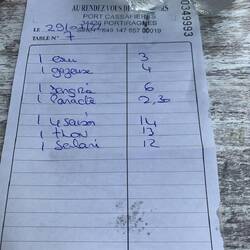 AU RENDEZ VOUS DES
PORT CASSAFIERES
34420 PORTIRAGNES
849 147 657 00019
LE 29/0
TABLE N° 7
0349993
1 eau 3
1 gazeuse 4
1 sangria 6
1 Panaché 2,30
1 4 saison 14
1 thon 13
1 salami 12